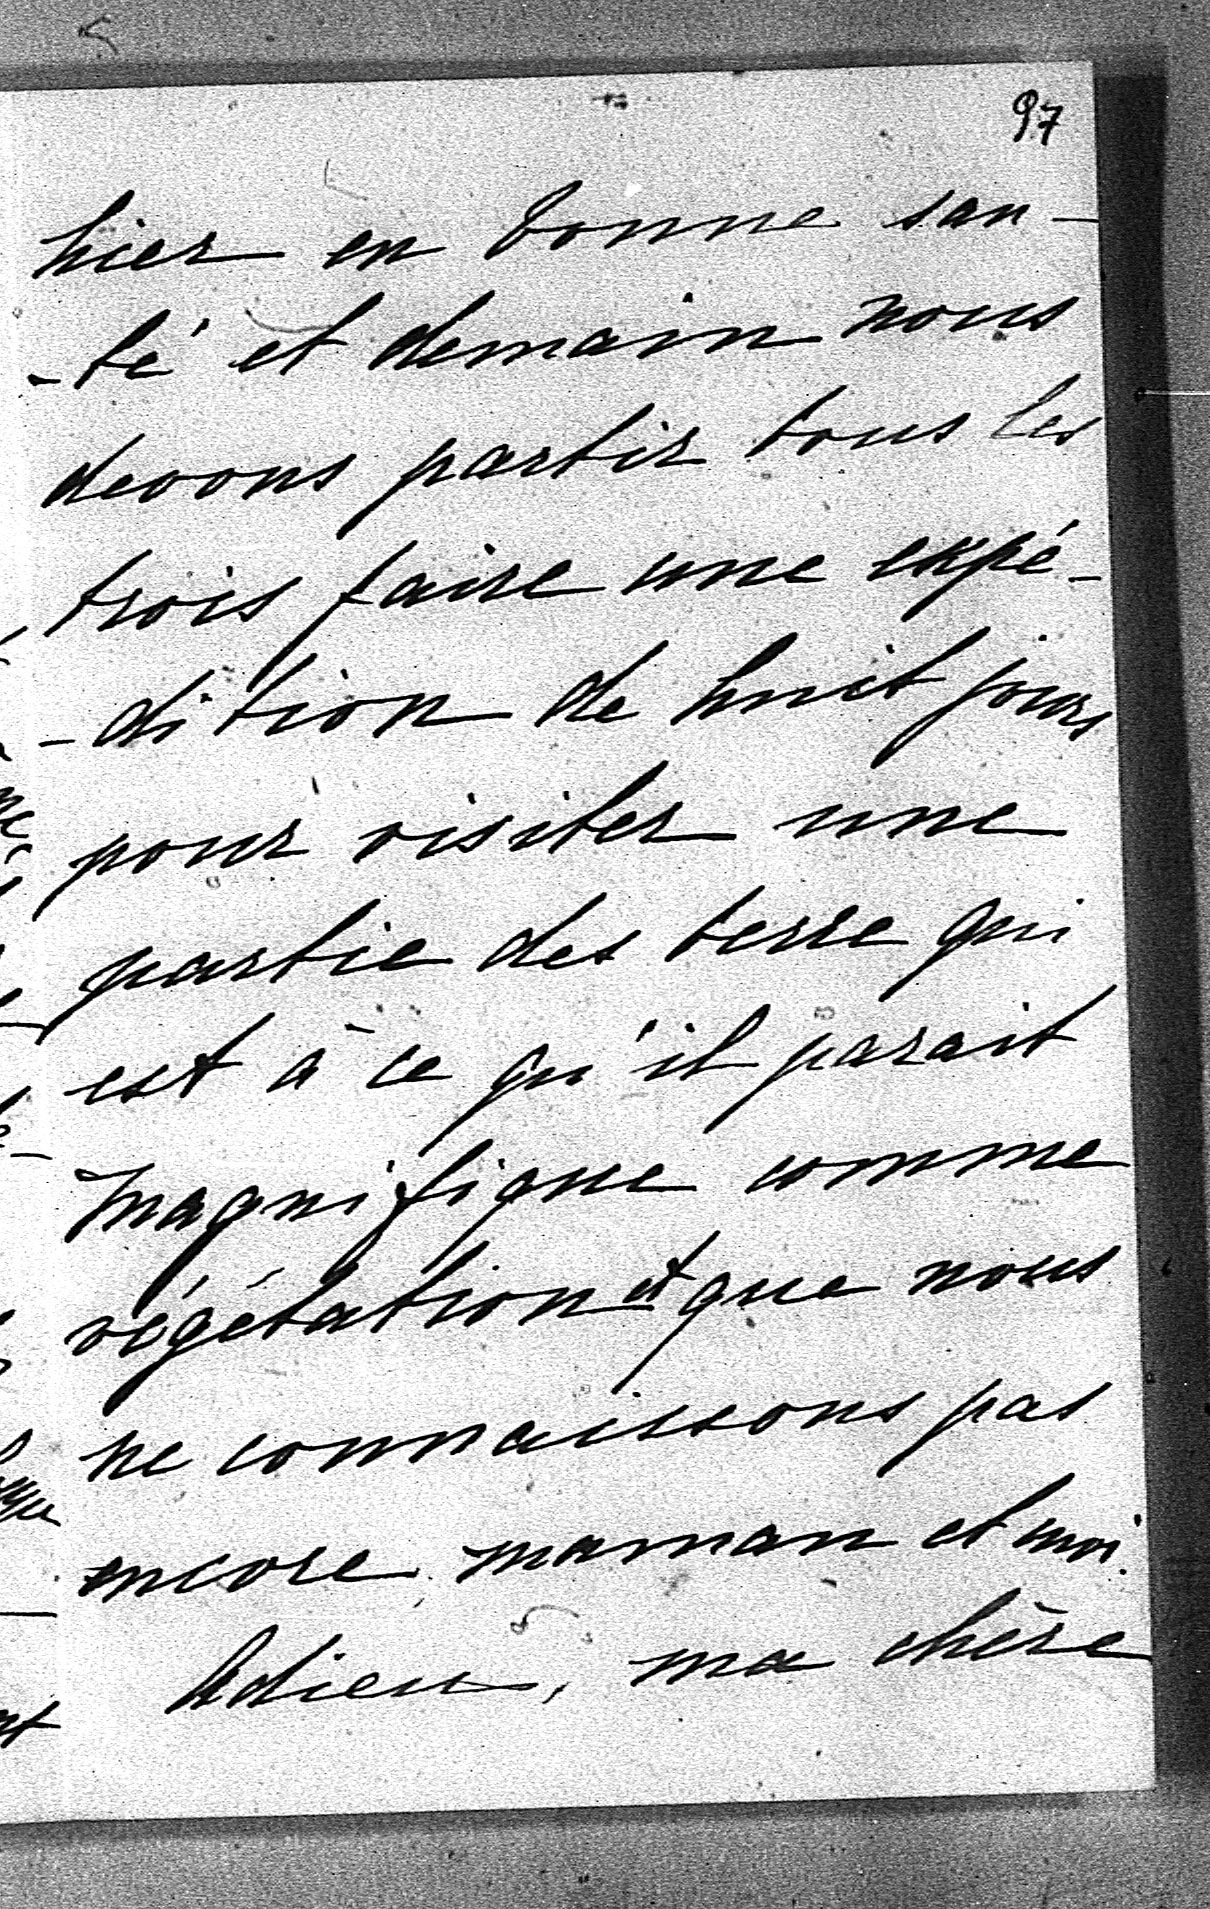 97
hier en bonne san-
-té et demain nous
devons partir tous les
trois faire une expé-
-dition de huit jours
pour visiter une
partie des terre qui
est à ce qu'il parait
magnifique comme
végétation et que nous
ne connaissons pas
encore, maman et moi.
Adieu, ma chère